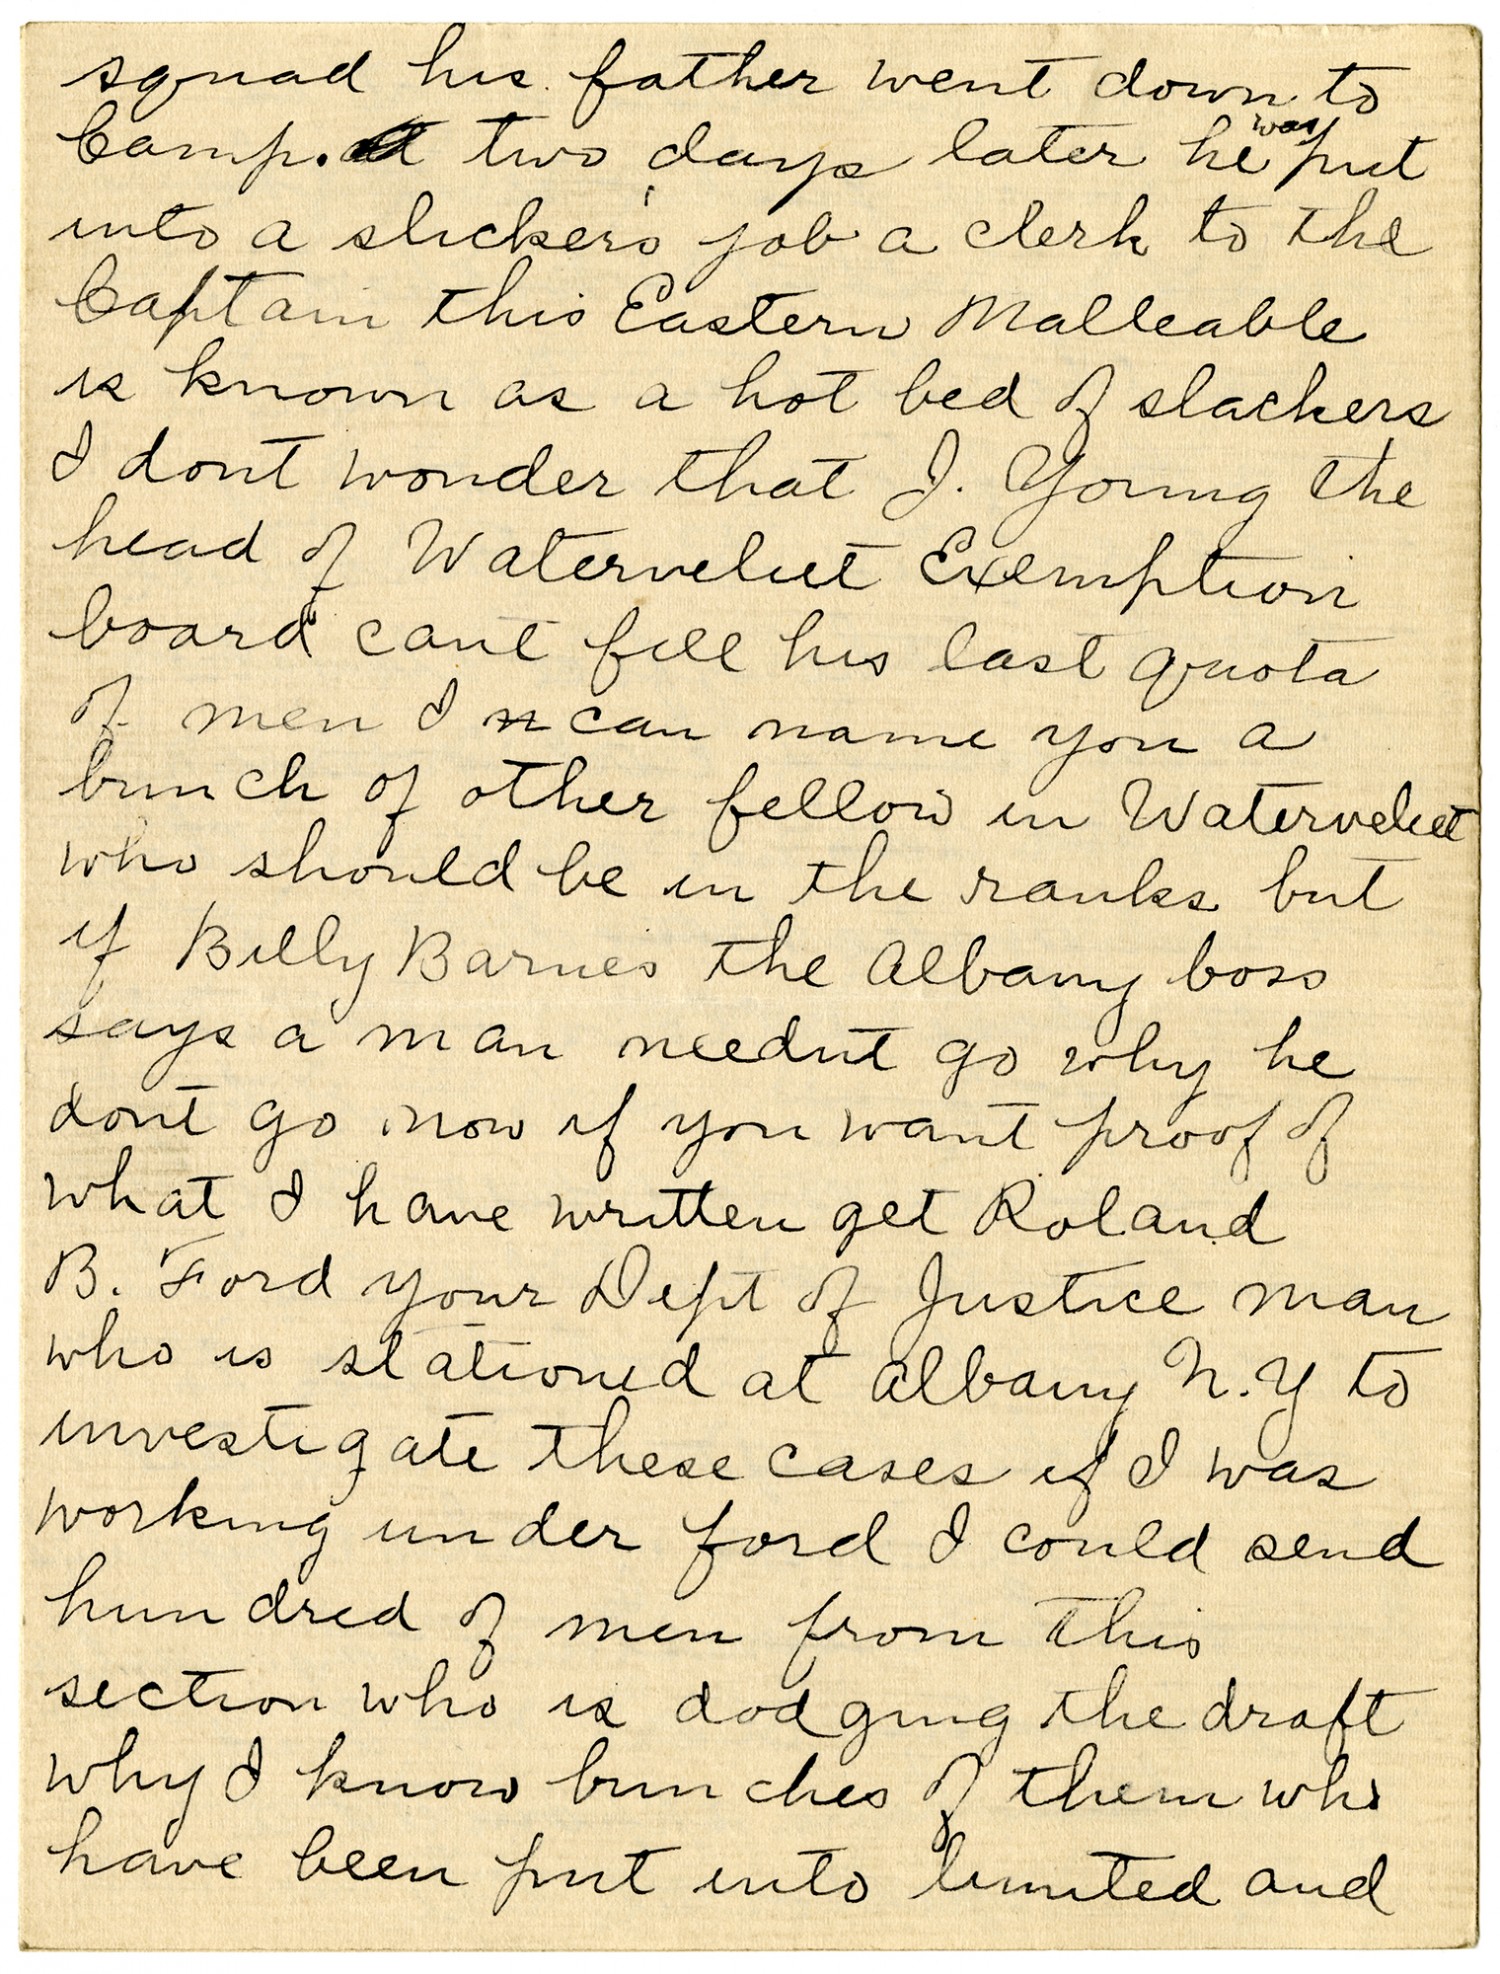 squad his father went down to
Camp. two days later he was put
into a slicker's job a clerk to the
Captain this Eastern Malleable
is known as a hot bed of slackers
I dont wonder that J. Young the
head of Waterveliet Exemption
board cant fill his last quota
of men I n can name you a
bunch of other fellow in Waterveliet
who should be in the ranks but
if Billy Barnes the Albany boss
says a man neednt go why he
dont go now if you want proof of
what I have written get Roland
B. Ford your Dept of Justice man
who is stationed at Albany N.Y to
investigate these cases if I was
working under ford I could send
hundred of men from this
section who is dodging the draft
why I know bunches of them who
have been put into limited and